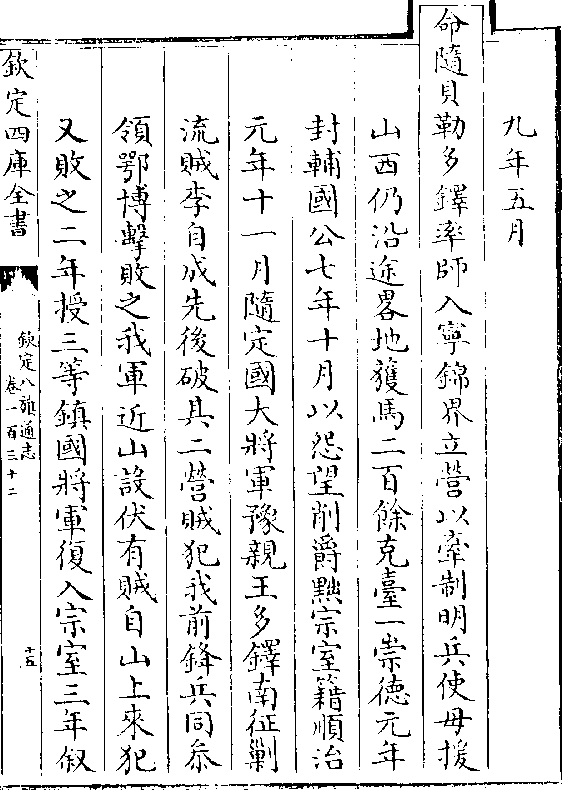 九年五月
命隨貝勒多鐸率師入寧錦界立營以牽制明兵使毋援
山西仍沿途畧地獲馬二百餘克臺一崇德元年
封輔國公七年十月以怨望削爵黜宗室籍順治
元年十一月隨定國大將軍豫親王多鐸南征剿
流賊李自成先後破其二營賊犯我前鋒兵同叅
領鄂博擊敗之我軍近山設伏有賊自山上來犯
又敗之二年授三等鎮國將軍復入宗室三年叙
欽定四庫全書
欽定八旗通志
卷一百三十二
十五